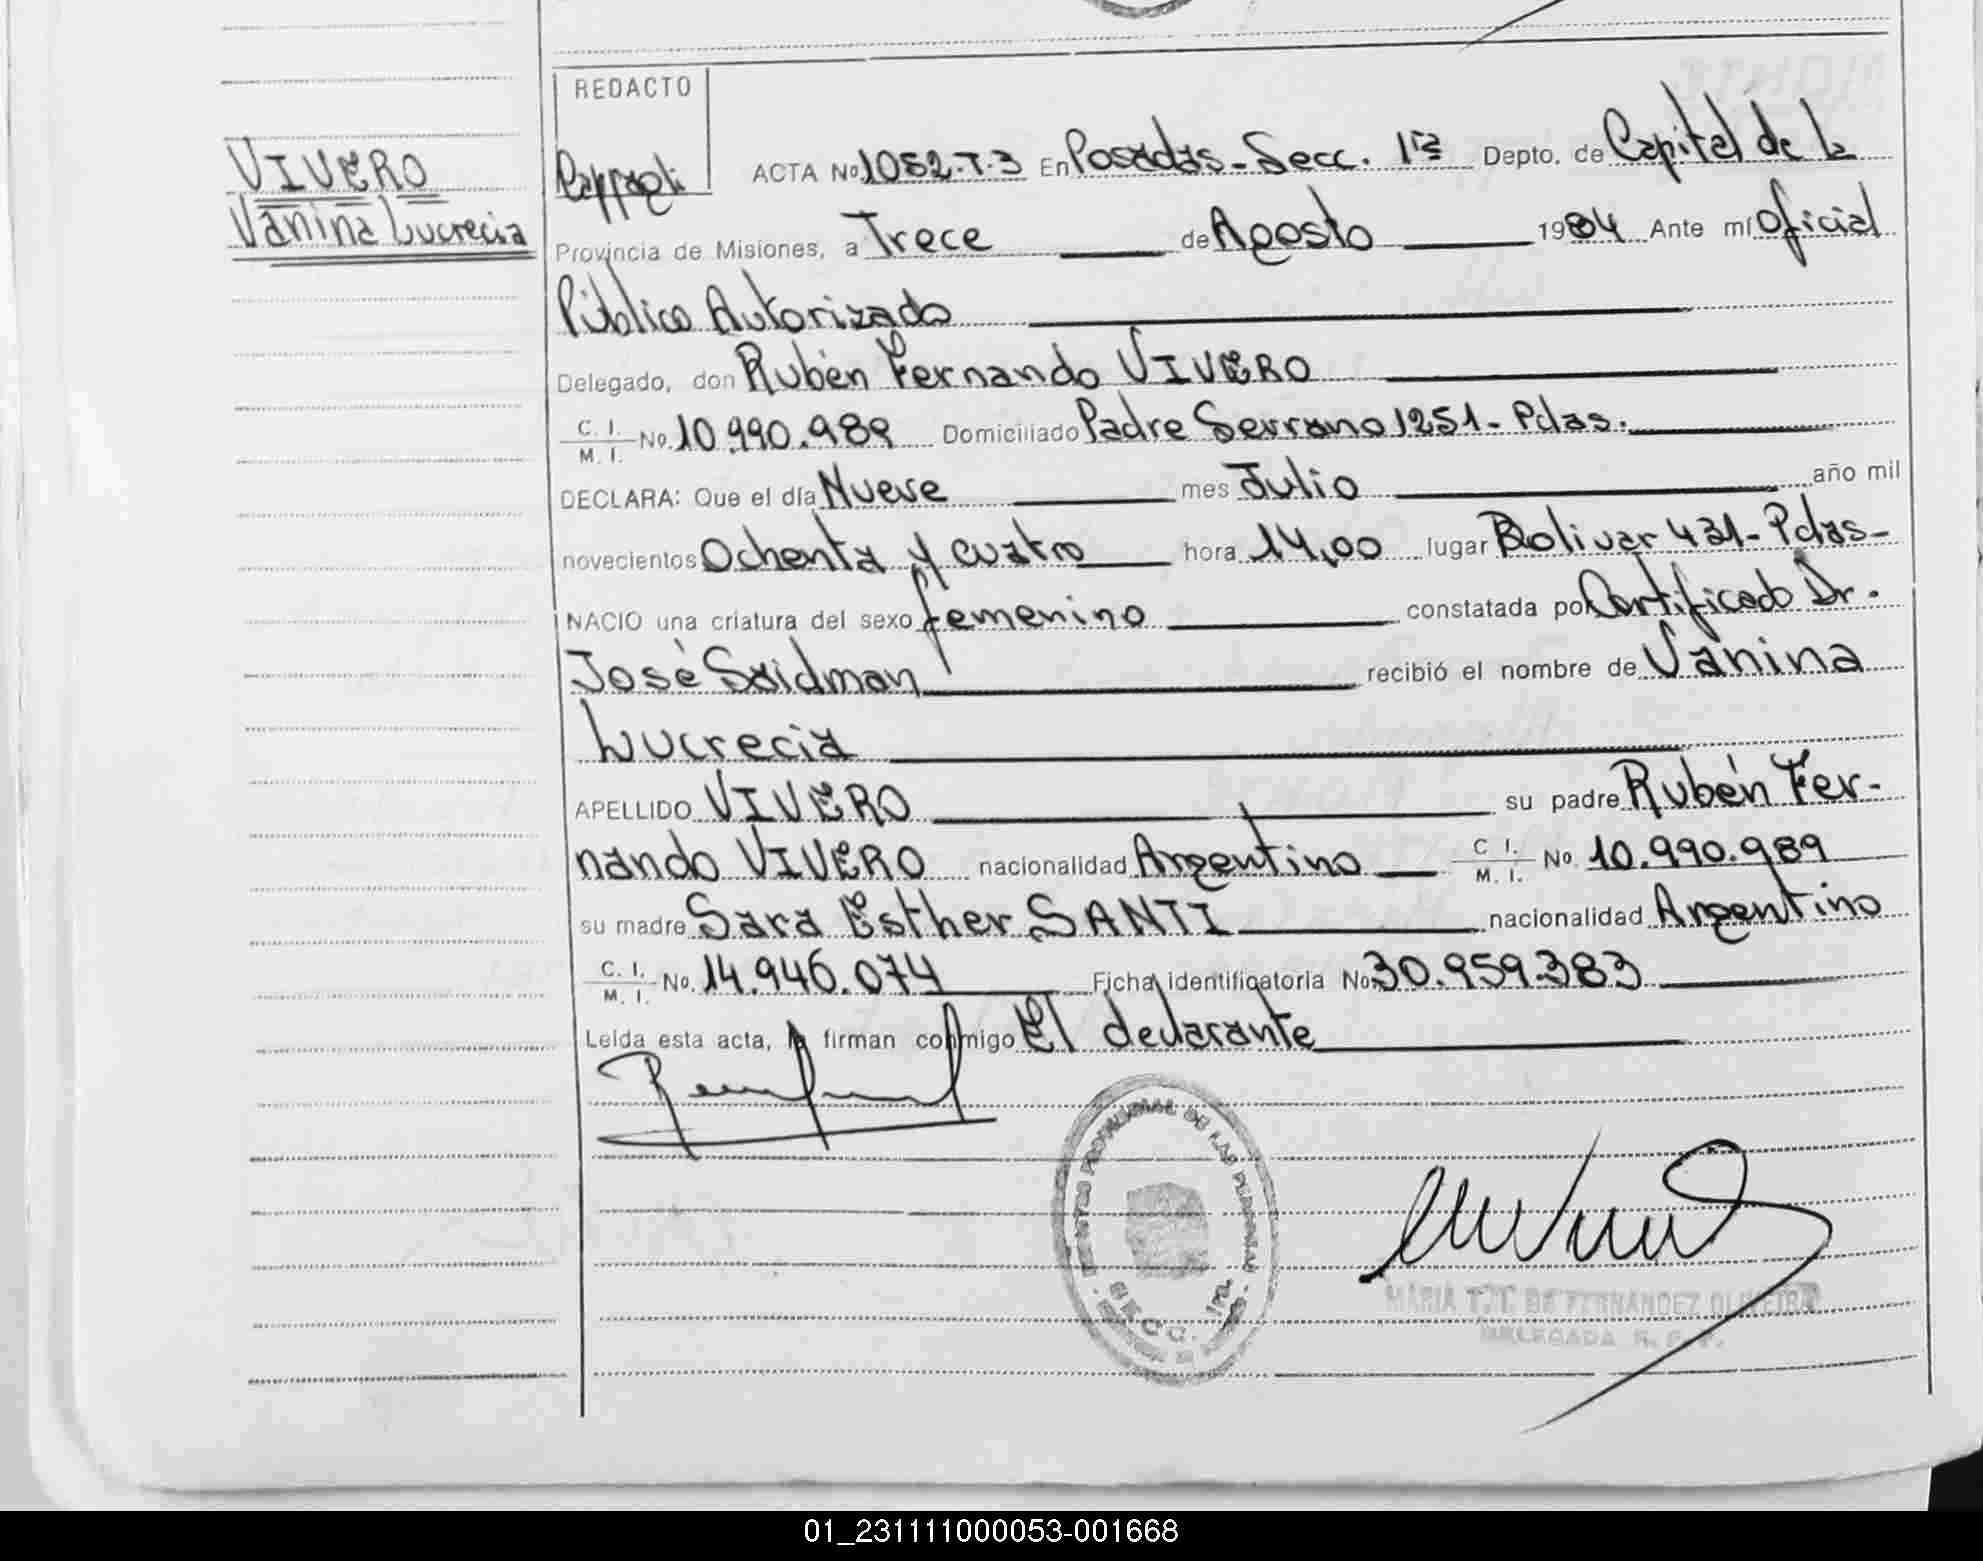 VIVERO
Vanina Lucrecia
REDACTO
ACTA No 1052-T-3 En Posadas-Secc. 1ra Depto. de Capital de la
Provincia de Misiones, a Trece de Agosto 1984 Ante mí Oficial
Público Autorizado
Delegado, don Rubén Fernando VIVERO
C. I.
M. I. No. 10.990.989 Domiciliado Padre Serrano 1251- Pdas.
DECLARA: Que el día Nueve mes Julio año mil
novecientos Ochenta y cuatro hora 14,00 lugar Bolivar 431-Pdas-
NACIO una criatura del sexo femenino constatada por Certificado Dr.
José Saidman recibió el nombre de Vanina
Lucrecia
APELLIDO VIVERO su padre Rubén Fer-
nando VIVERO nacionalidad Argentino C I. M. I. No. 10.990.989
su madre Sara Esther SANTI nacionalidad Argentino
C. I.
M. I. No. 14.946.074 Ficha identificatoria No 30.959.383
Leída esta acta, la firman conmigo El declarante
PROVINCIAL DE LAS PERSONAS
SECC. 1ra.
MARIA T. T. DE FERNANDEZ OLIVEIRA
DELEGADA R. P. P.
01_231111000053-001668